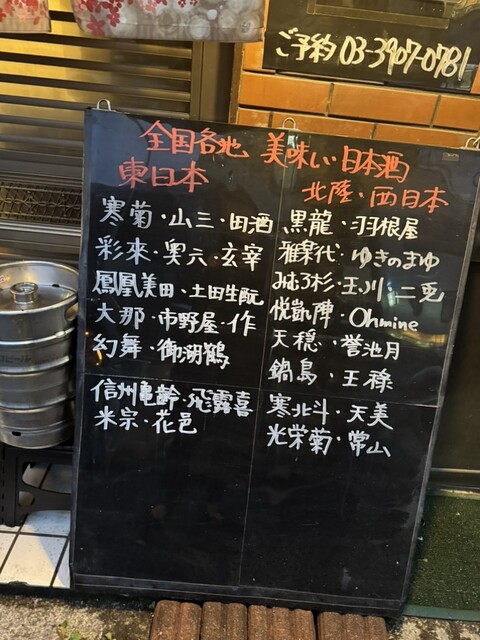 ご予約 03-3907-0781
全国各地 美味しい日本酒
東日本
寒菊・山三・田酒
彩來・奥六・玄宰
鳳凰美田・土田生酛
大那・市野屋・作
幻舞・御湖鶴
信州亀齢・飛露喜
米宗・花邑
北陸・西日本
黒龍・羽根屋
雅楽代・ゆきのまゆ
みむろ杉・玉川・二兎
悦凱陣・Ohmine
天穏・誉池月
鍋島・王祿
寒北斗・天美
光栄菊・常山